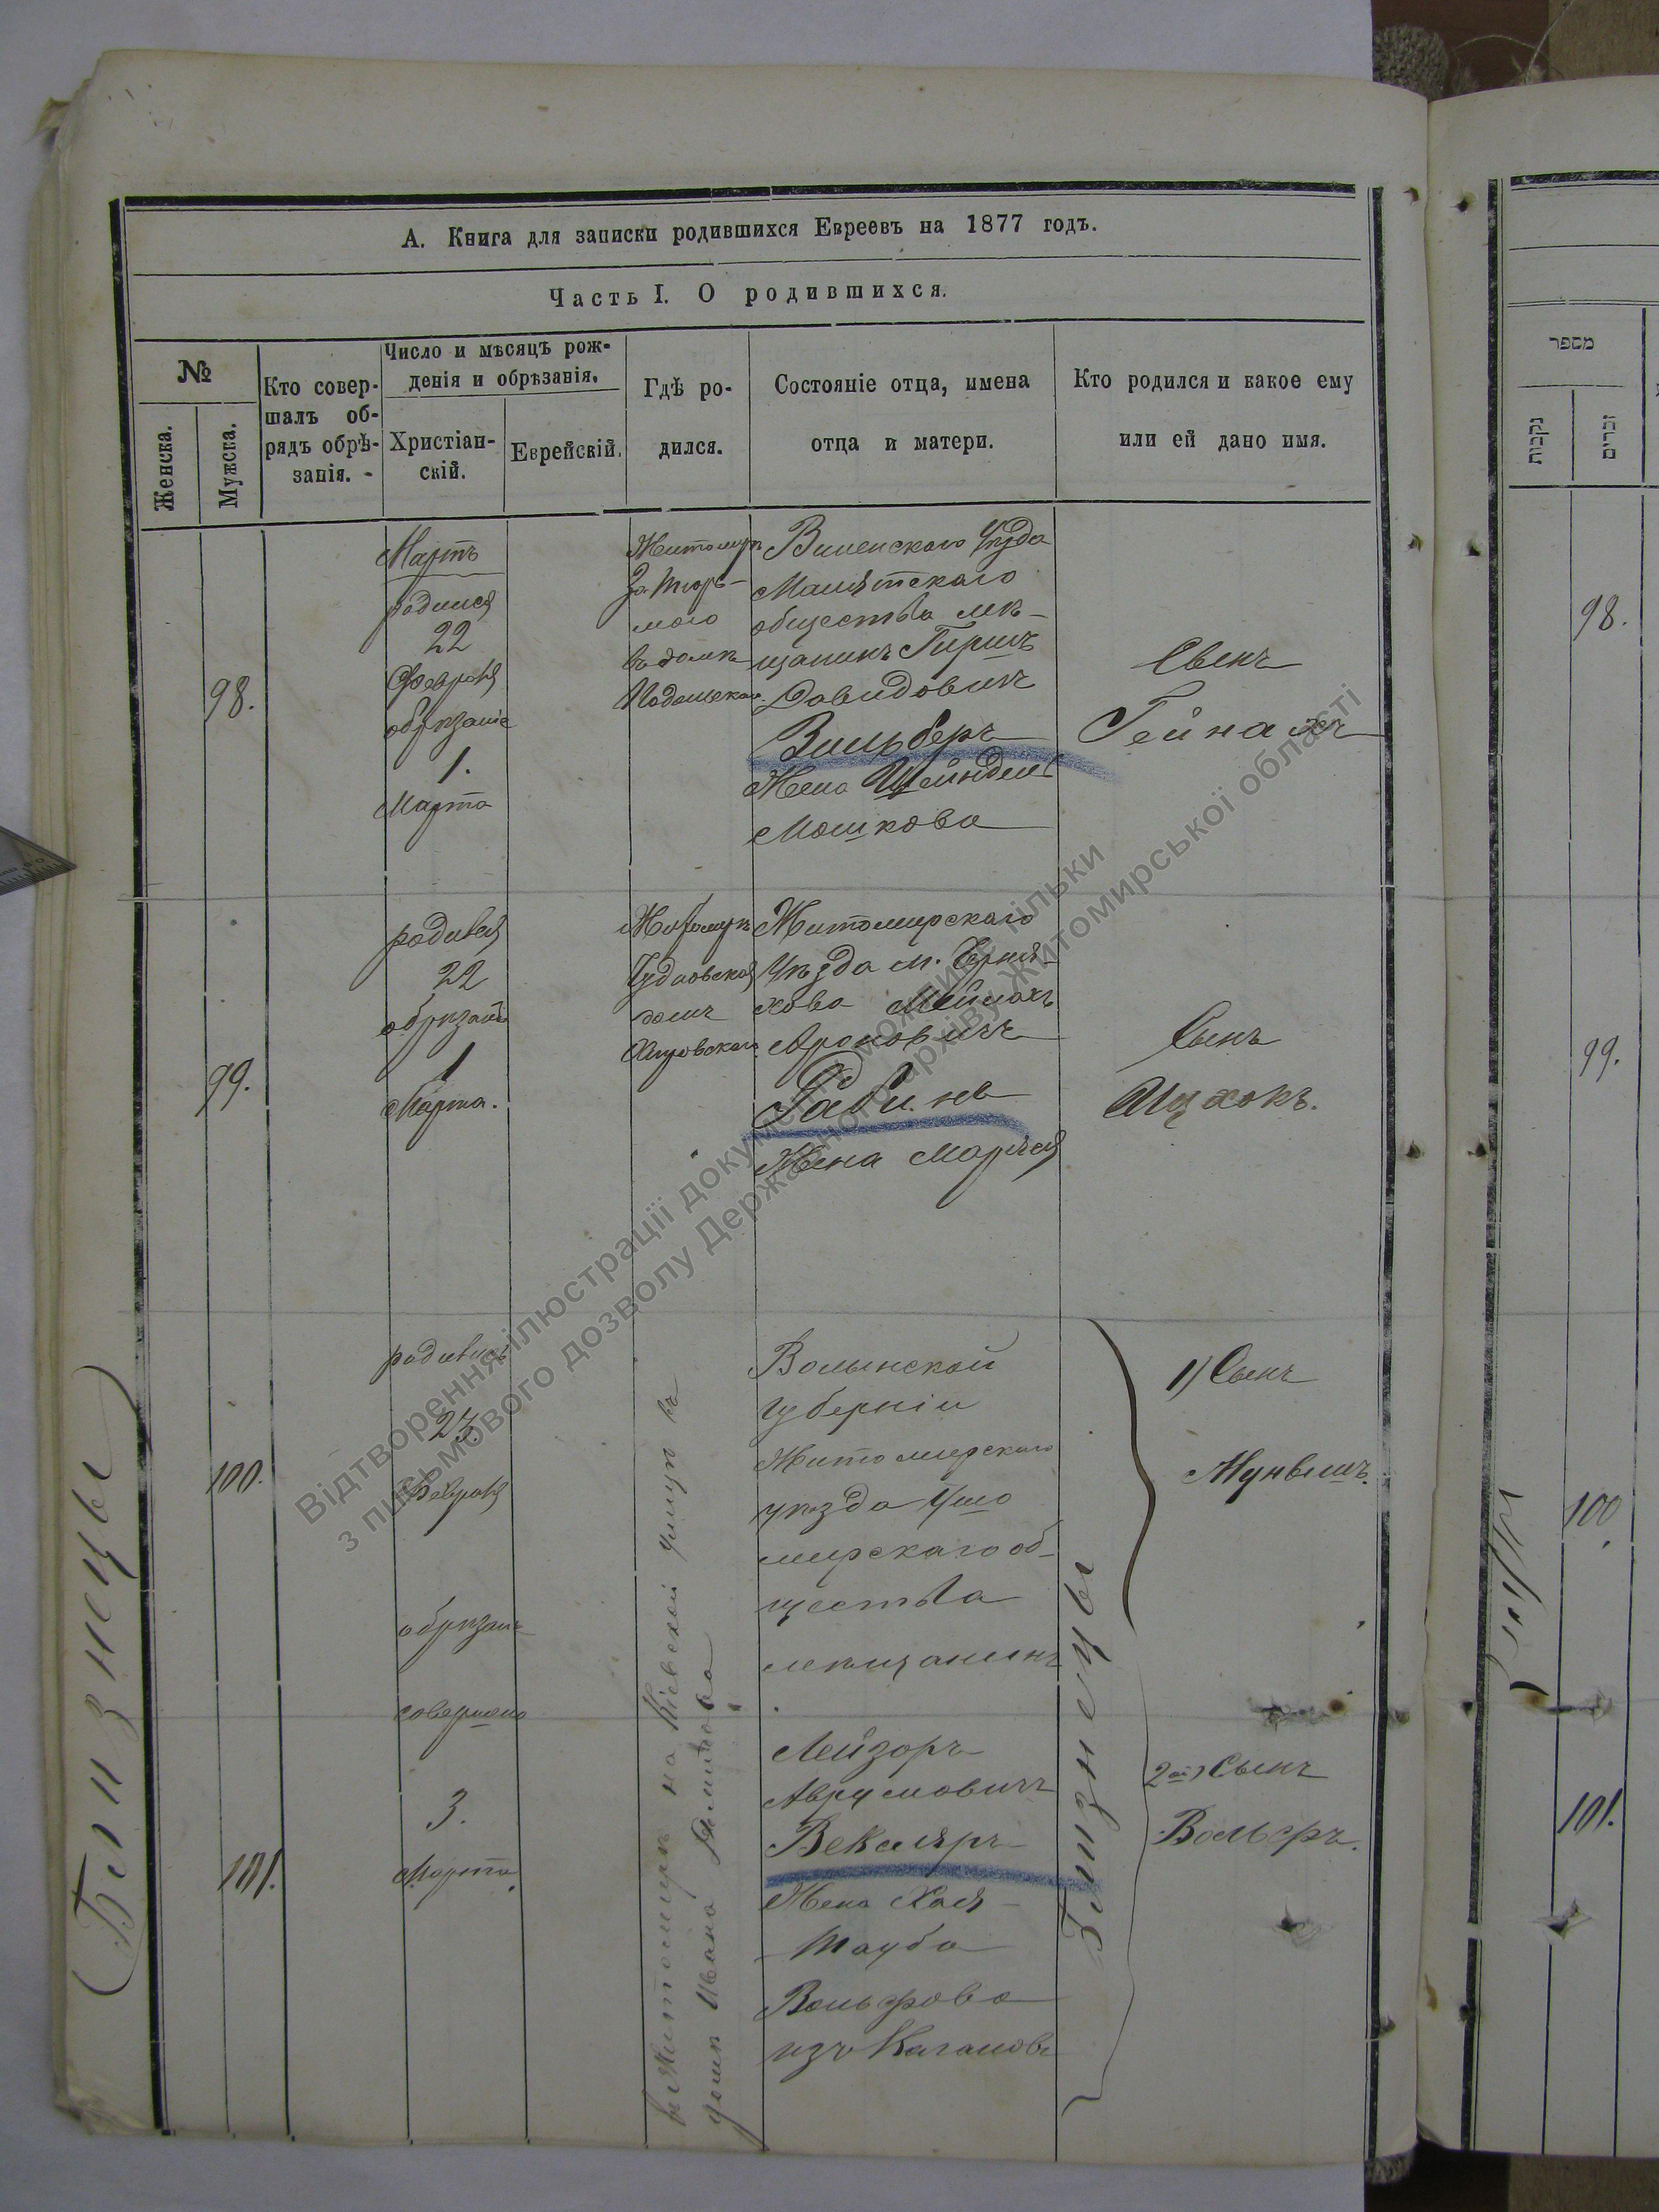 А. Книга для записки родившихся Евреевъ на 1877 годъ.
Часть I. О родившихся.
№
Женска.
Мужска.
Кто совер-
шалъ об-
рядъ обрѣ-
занія.
Число и мѣсяцъ рож-
денія и обрѣзанія.
Христіан-
скій.
Еврейскій.
Гдѣ ро-
дился.
Состояніе отца, имена
отца и матери.
Кто родился и какое ему
или ей дано имя.
98.
Мартъ
родился
22
Февраля
обрѣзаніе
1.
Марта
Житомиръ
Виленскаго Уѣзда
общества мѣ-
щанинъ Гиршъ
Давидовичъ
Зильберъ
Жена Шейндель
Мошкова
Сынъ
Гейнахъ
99.
родився
22
обрѣзанъ
1
Марта.
Житомиръ
Чудновская
домъ
Житомирскаго
Уѣзда м. Черня-
хова
Ароновичъ
Рабинъ
Жена
Сынъ
Ицхокъ.
(Близнецы)
100.
101.
родились
23.
Февраля
обрѣзаніе
совершено
3.
Марта.
въ Житомирѣ на Кіевской улицѣ въ
домѣ Ивана
Волынской
губерніи
Житомирскаго
уѣзда Ушо
мирскаго об-
щества
мѣщанинъ
Лейзоръ
Аврумовичъ
Векслеръ
Жена Хая
Тауба
Вольфова
изъ Кагановъ
Близнецы
1) Сынъ
2ой) Сынъ
Вольфъ.
מספר
נקבות
זכרים
98.
99.
100
101.
Відтворення ілюстрації документу можливе тільки
з письмового дозволу Державного архіву Житомирської області